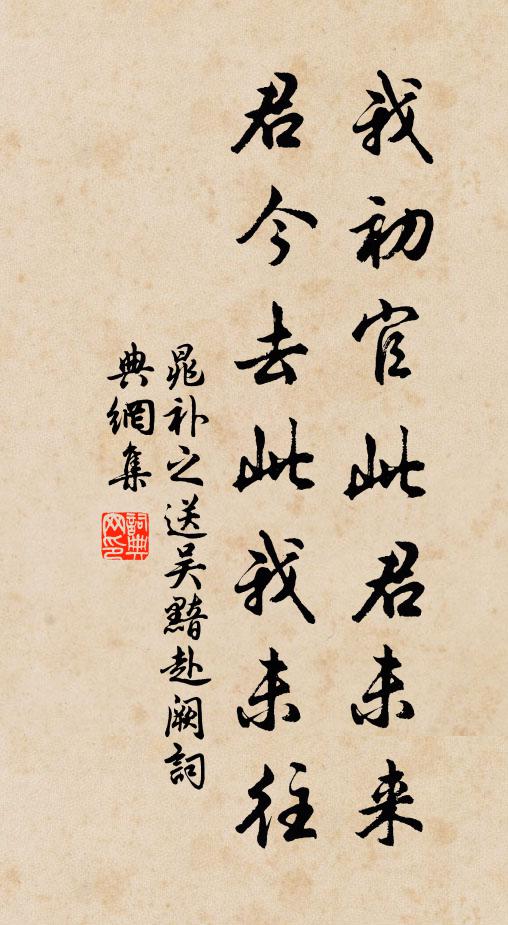 我初官此君未来
君今去此我未往
晁补之送吴黯赴阙詞
典網集
詞典網印